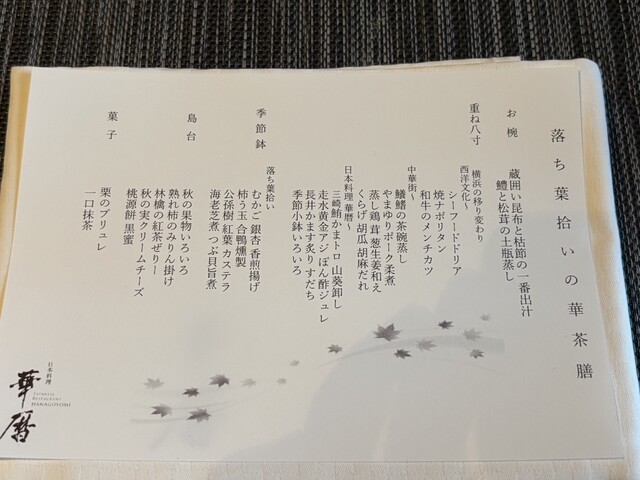 落ち葉拾いの華茶膳
お椀
蔵囲い昆布と枯節の一番出汁
鱧と松茸の土瓶蒸し
重ね八寸
横浜の移り変わり
西洋文化~
シーフードドリア
焼ナポリタン
和牛のメンチカツ
中華街~
鱶鰭の茶碗蒸し
やまゆりポーク柔煮
蒸し鶏 茸 葱生姜和え
くらげ 胡瓜 胡麻だれ
日本料理 華暦~
三崎鮪かまトロ 山葵卸し
走水黄金アジ ぽん酢ジュレ
長井かます炙り すだち
季節小鉢いろいろ
季節鉢
落ち葉拾い
むかご 銀杏 香煎揚げ
柿う玉 合鴨燻製
公孫樹 紅葉 カステラ
海老芝煮 つぶ貝旨煮
島台
秋の果物いろいろ
熟れ柿のみりん掛け
林檎の紅茶ぜりー
秋の実クリームチーズ
桃源餅 黒蜜
菓子
栗のブリュレ
一口抹茶
日本料理
JAPANESE
RESTAURANT
HANAGOYOMI
華暦